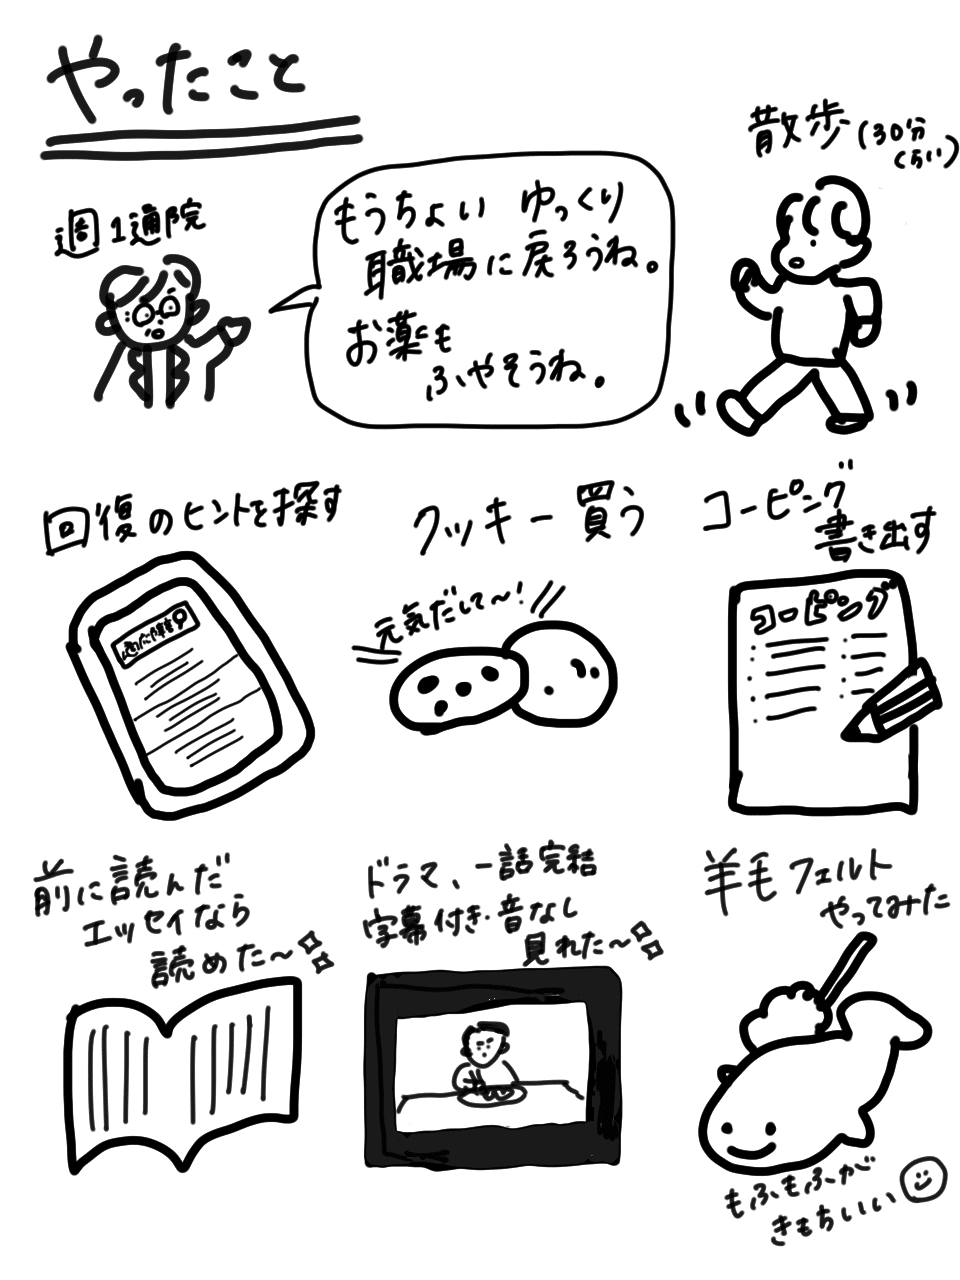 やったこと
週1通院
もうちょい ゆっくり
職場に戻ろうね。
お薬も
ふやそうね。
散歩(30分
くらい)
回復のヒントを探す
適応障害
クッキー買う
元気だして〜!
コーピング
書き出す
コーピング
前に読んだ
エッセイなら
読めた〜
ドラマ、一話完結
字幕付き・音なし
見れた〜
羊毛フェルト
やってみた
もふもふが
きもちいい